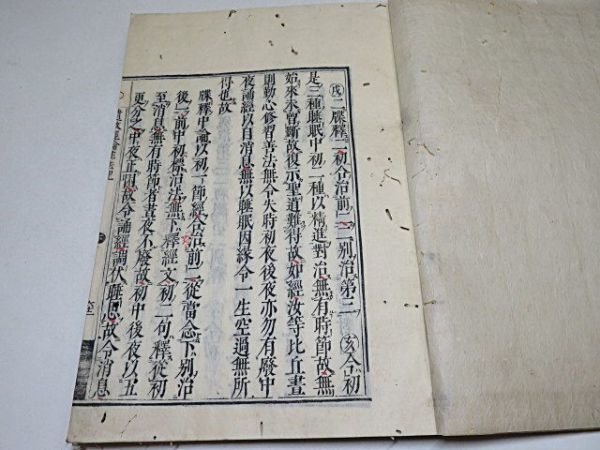 戌二牒釋二初合治前二二別治第三 亥今初
是三種睡眠中初二種以精進對治無有時節故無
始來未曾斷故復示聖道難得故如經汝等比丘晝
則勤心修習善法無令失時初夜後夜亦勿有廢中
夜誦經以自消息無以睡眠因緣令一生空過無所
得也故
牒釋中論以初一節經合治前二從當念下別治
後一前中初標治法無下釋經文初二句釋從初
至消息無有時節者晝夜不廢故初中後夜以五
更分之中夜正眠故令誦經調伏睡心故令消息